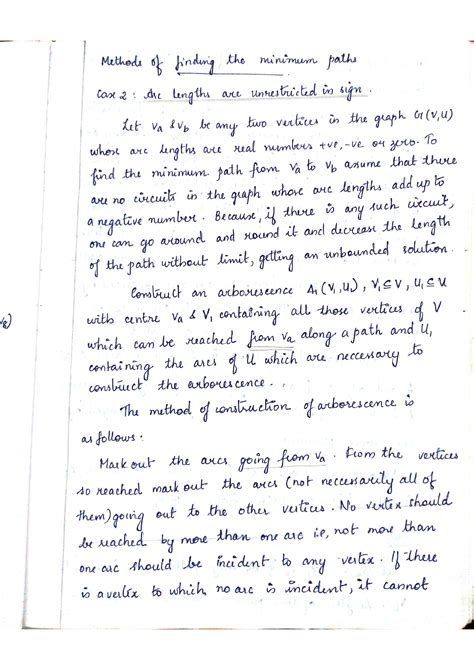 Methods of finding the minimum paths
Case 2 : Arc lengths are unrestricted in sign.
Let va & vb be any two vertices in the graph G(V,U)
whose arc lengths are real numbers +ve, -ve or zero. To
find the minimum path from va to vb assume that there
are no circuits in the graph whose arc lengths add up to
a negative number. Because, if there is any such circuit,
one can go around and round it and decrease the length
of the path without limit, getting an unbounded solution.
Construct an arborescence A1(V1, U1), V1 ⊆ V, U1 ⊆ U
with centre va & V1 containing all those vertices of V
which can be reached from va along a path and U1
containing the arcs of U which are necessary to
construct the arborescence.
The method of construction of arborescence is
as follows.
Mark out the arcs going from va. From the vertices
so reached mark out the arcs (not necessarily all of
them) going out to the other vertices. No vertex should
be reached by more than one arc i.e, not more than
one arc should be incident to any vertex. If there
is a vertex to which no arc is incident, it cannot